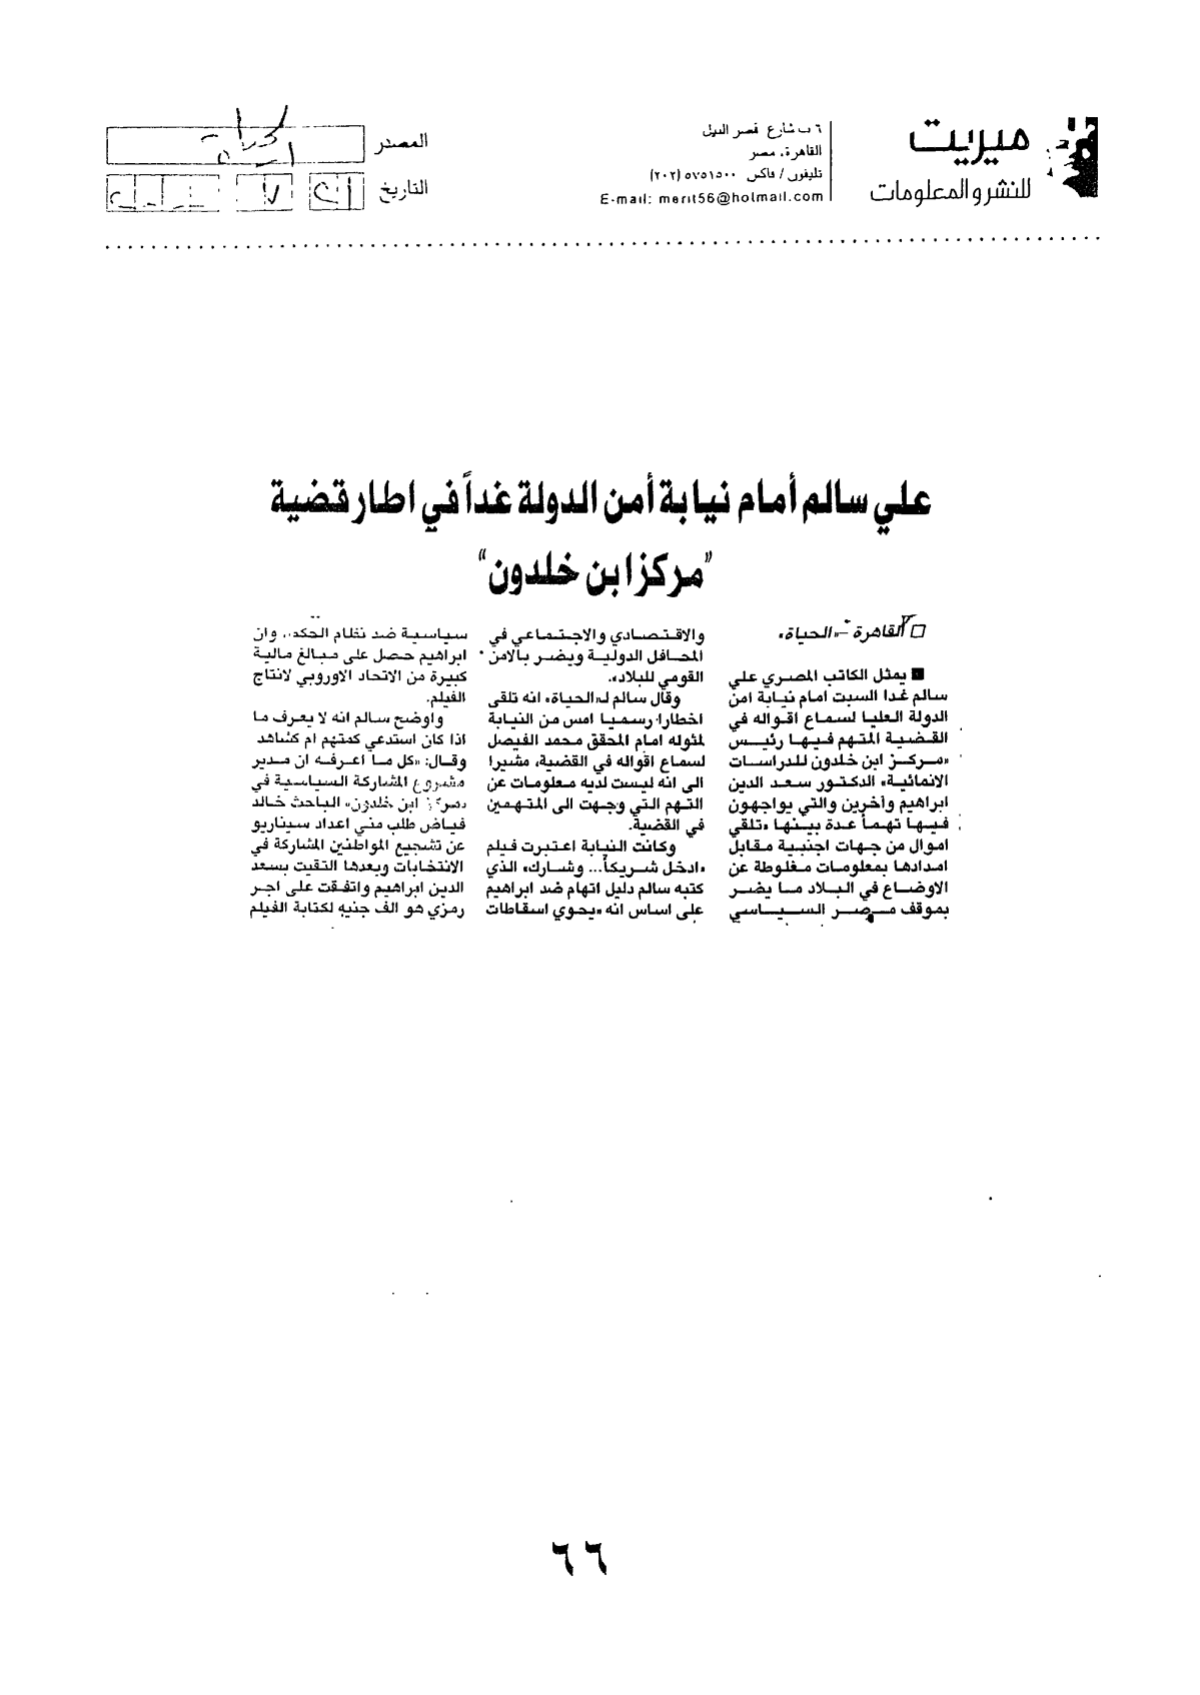 ميريت
للنشر والمعلومات
٦ ب شارع قصر النيل
القاهرة، مصر
تليفون / فاكس ٥٧٥١٥٠٠ (٢٠٢)
E-mail: merit56@hotmail.com
المصدر
التاريخ
علي سالم أمام نيابة أمن الدولة غداً في اطار قضية
"مركز ابن خلدون"
□ القاهرة - «الحياة»
■ يمثل الكاتب المصري علي
سالم غدا السبت امام نيابة امن
الدولة العليا لسماع اقواله في
القضية المتهم فيها رئيس
«مركز ابن خلدون للدراسات
الانمائية» الدكتور سعد الدين
ابراهيم وآخرين والتي يواجهون
فيها تهماً عدة بينها «تلقي
اموال من جهات اجنبية مقابل
امدادها بمعلومات مغلوطة عن
الاوضاع في البلاد ما يضر
بموقف مصر السياسي
والاقتصادي والاجتماعي في
المحافل الدولية ويضر بالامن
القومي للبلاد».
وقال سالم لـ«الحياة» انه تلقى
اخطارا رسميا امس من النيابة
لمثوله امام المحقق محمد الفيصل
لسماع اقواله في القضية، مشيرا
الى انه ليست لديه معلومات عن
التهم التي وجهت الى المتهمين
في القضية.
وكانت النيابة اعتبرت فيلم
«ادخل شريكاً... وشارك» الذي
كتبه سالم دليل اتهام ضد ابراهيم
على اساس انه «يحوي اسقاطات
سياسية ضد نظام الحكم»، وان
ابراهيم حصل على مبالغ مالية
كبيرة من الاتحاد الاوروبي لانتاج
الفيلم.
واوضح سالم انه لا يعرف ما
اذا كان استدعي كمتهم ام كشاهد
وقال: «كل ما اعرفه ان مدير
مشروع المشاركة السياسية في
«مركز ابن خلدون» الباحث خالد
فياض طلب مني اعداد سيناريو
عن تشجيع المواطنين المشاركة في
الانتخابات وبعدها التقيت بسعد
الدين ابراهيم واتفقت على اجر
رمزي هو الف جنيه لكتابة الفيلم
٦٦